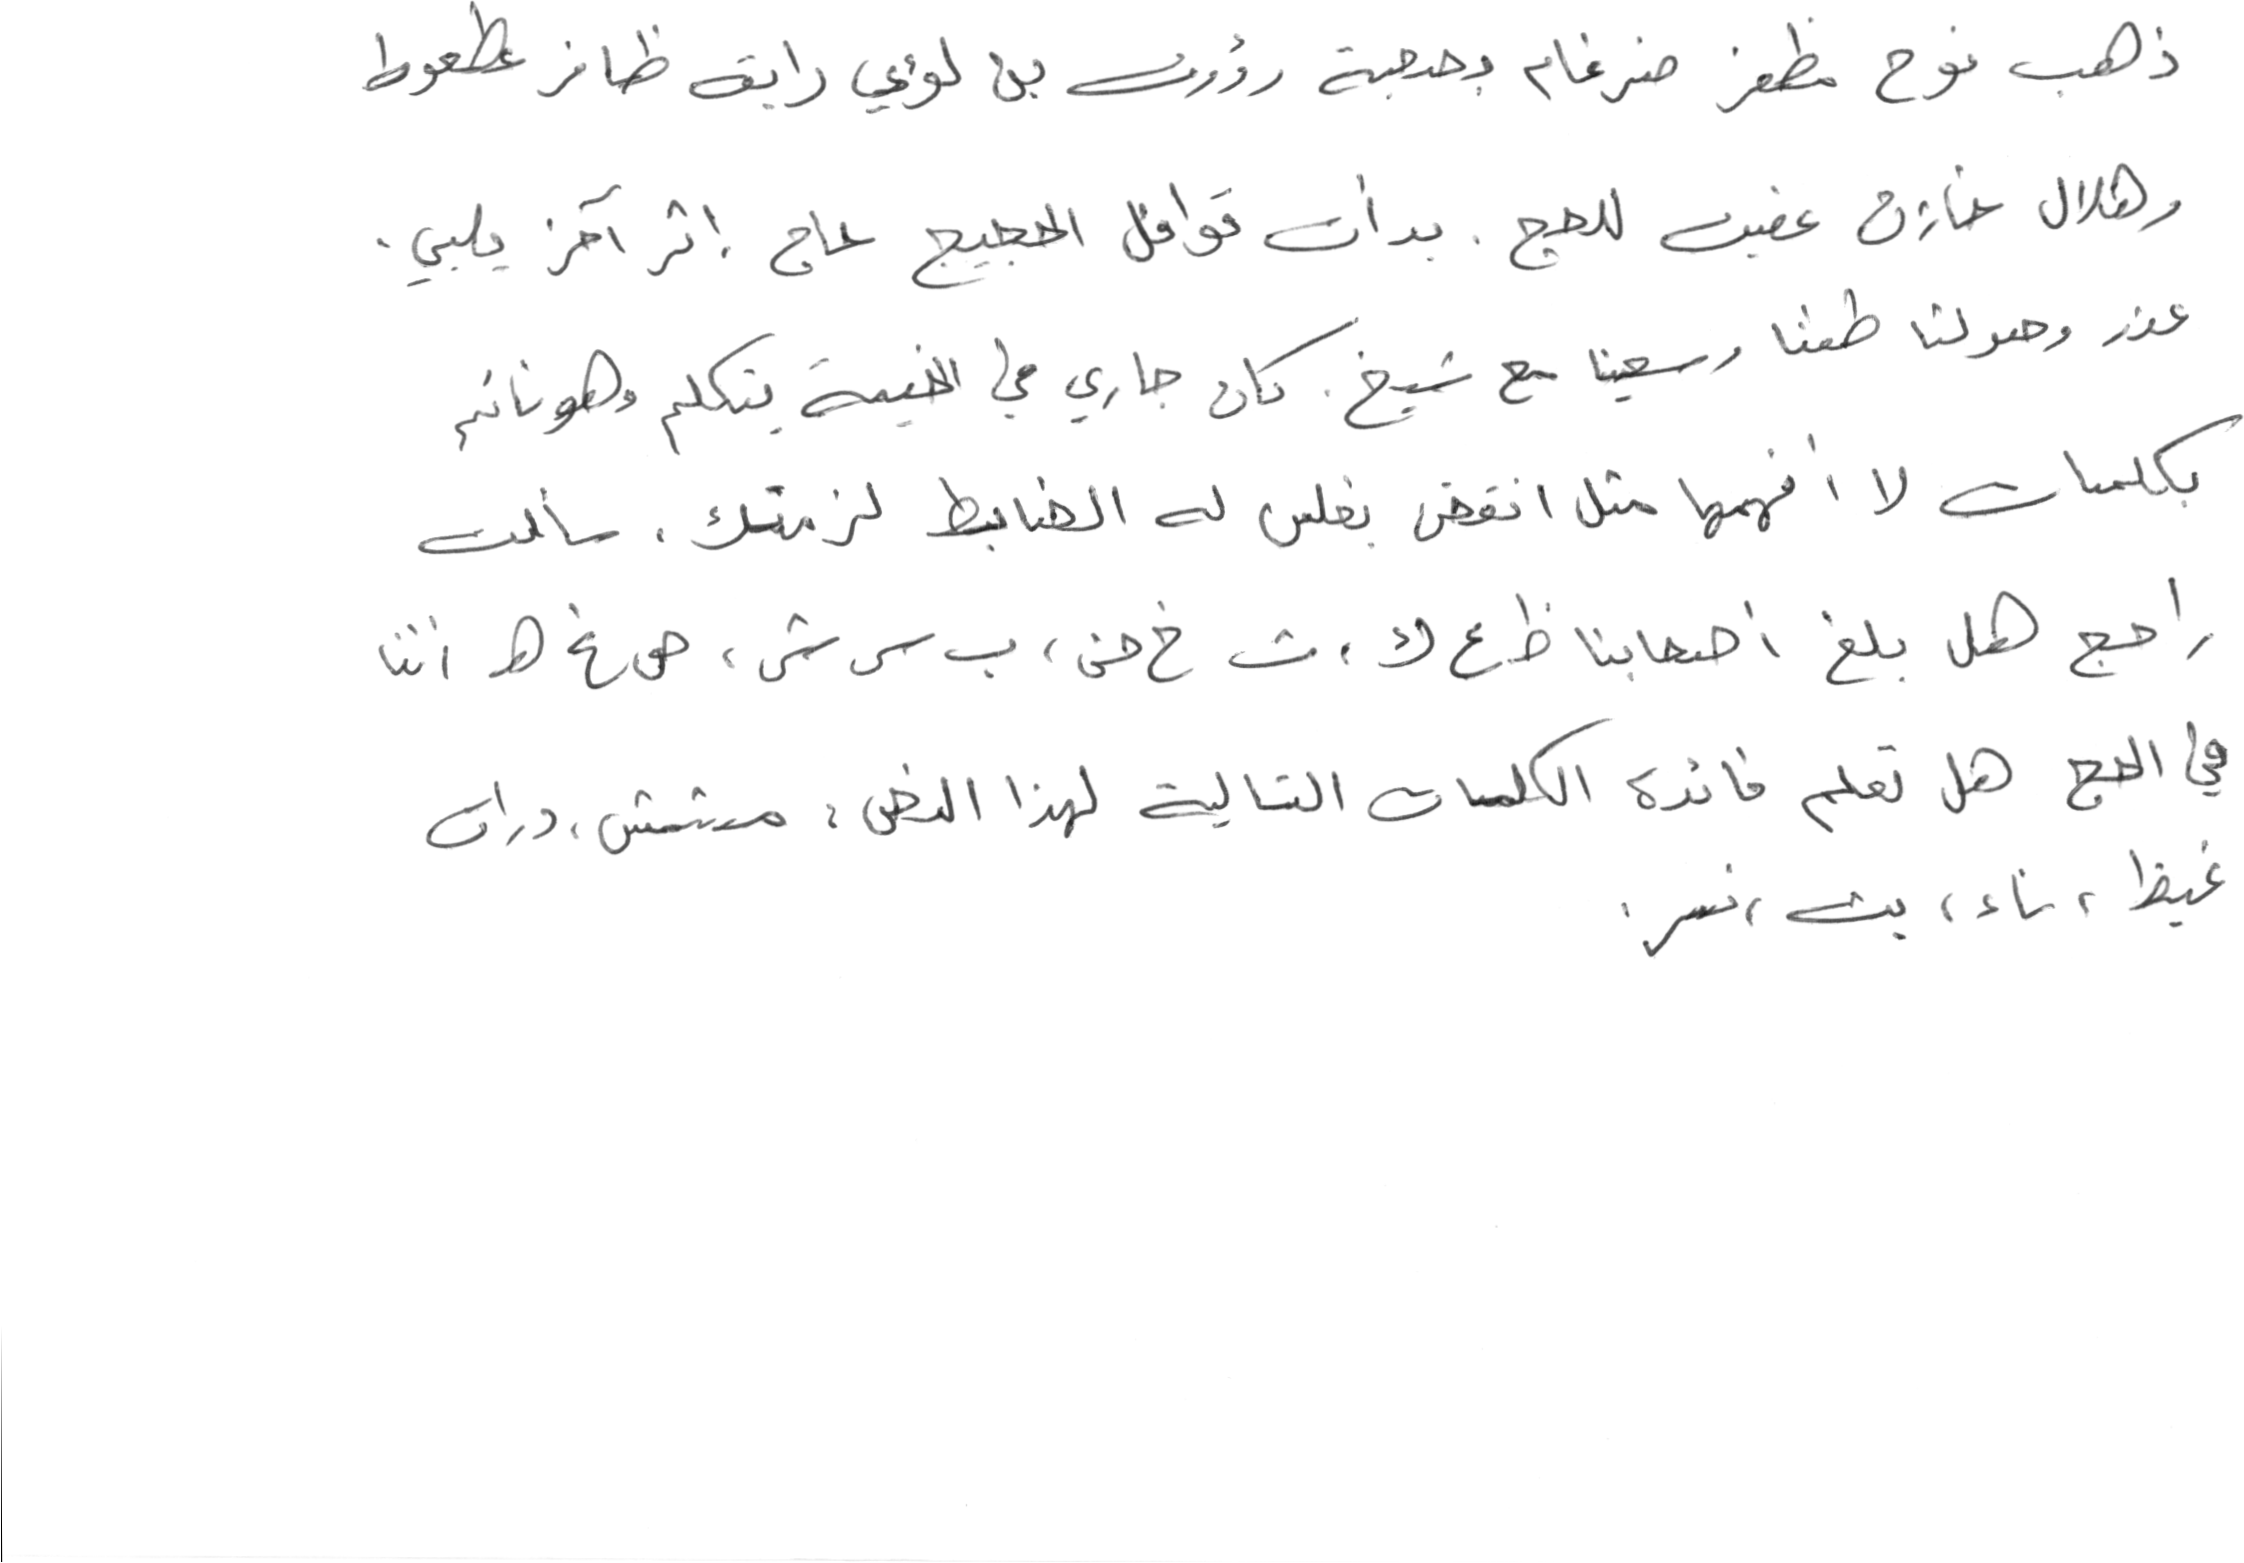 ذهب نوح مظفر ضرغام بصحبة رؤوف بن لؤي رايق ظافر عطعوط
وهلال خازن عفيف للحج . بدأت قوافل الحجيج حاج ، اثر آخر يلبي .
عند وصولنا طفنا وسعينا مع شيخ . كان جاري في الخيمة يتكلم وهو نائم
بكلمات لا أفهمها مثل انقض بغلس له الضابط لزمتك . سألت
راجح هل بلغ أصحابنا ظ ع ك ، ث خ ض ، ب س ش ، ص غ ط اننا
في الحج هل تعلم فائدة الكلمات التالية لهذا النص : مشمش ، درات
غيظ ، ناء ، بث ، نسر .